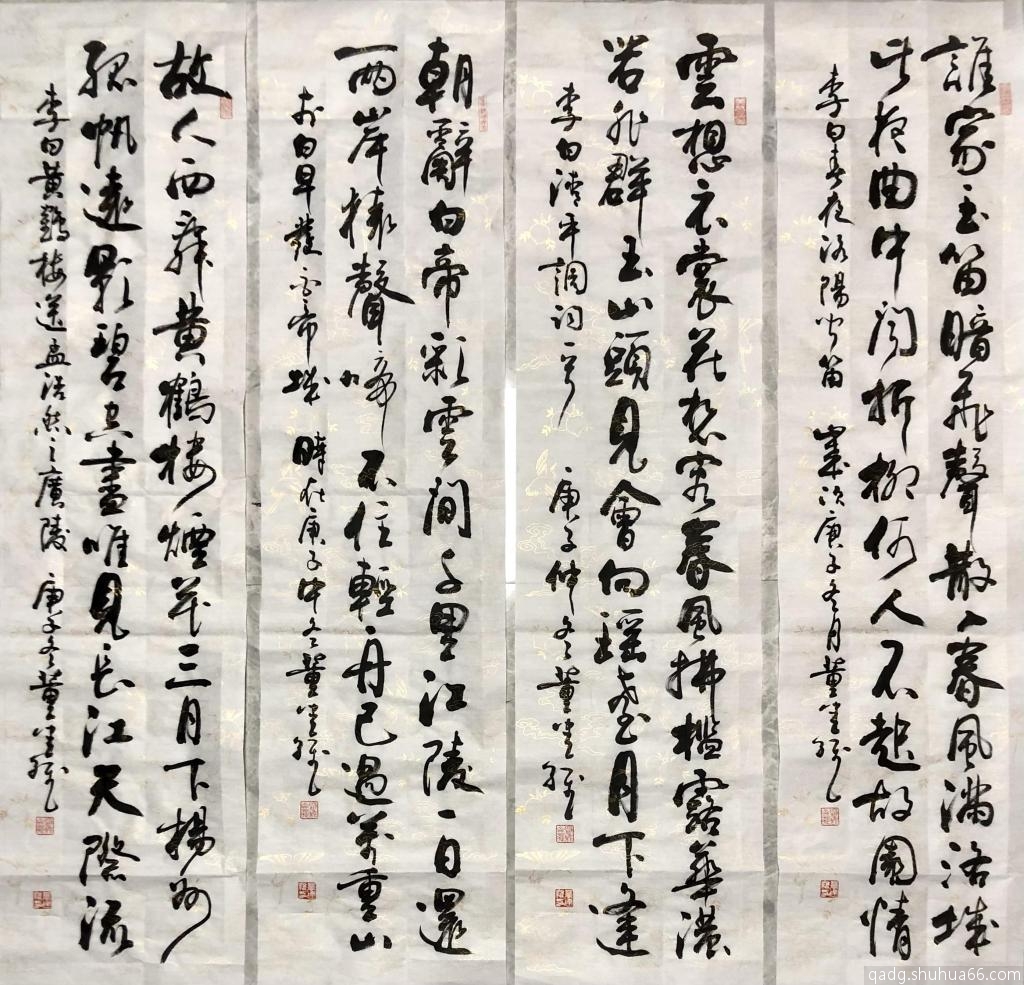 誰家玉笛暗飛聲散入春風滿洛城
此夜曲中聞折柳何人不起故園情
李白春夜洛陽聞笛 歲次庚子冬月董
雲想衣裳花想容春風拂檻露華濃
若非群玉山頭見會向瑤臺月下逢
李白清平調詞一首 庚子仲冬董
朝辭白帝彩雲間千里江陵一日還
兩岸猿聲啼不住輕舟已過萬重山
李白早發白帝城 時在庚子中冬董
故人西辭黃鶴樓煙花三月下揚州
孤帆遠影碧空盡唯見長江天際流
李白黃鶴樓送孟浩然之廣陵 庚子冬董
qadg.shuhua66.com